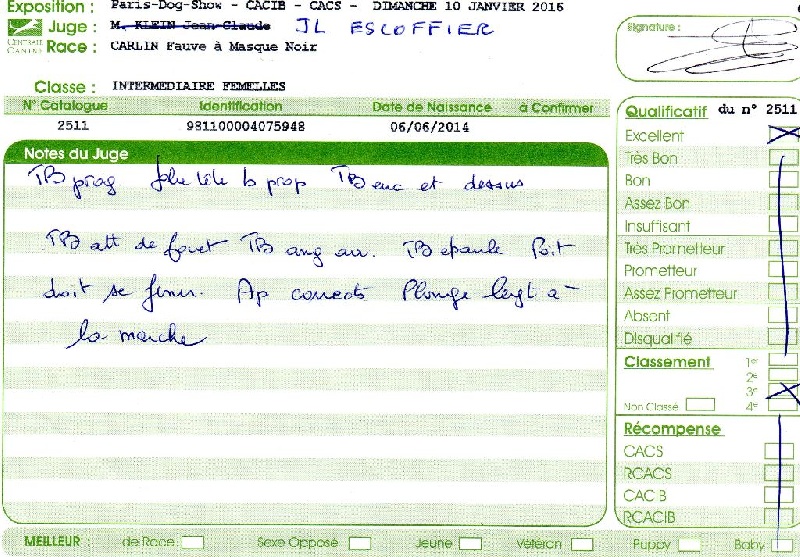 Exposition : Paris-Dog-Show - CACIB - CACS - DIMANCHE 10 JANVIER 2016
Juge : M. KLEIN Jean-Claude JL ESCOFFIER
Signature :
CENTRALE CANINE
Race : CARLIN Fauve à Masque Noir
Classe : INTERMEDIAIRE FEMELLES
N° Catalogue Identification Date de Naissance à Confirmer
2511 981100004075948 06/06/2014
Notes du Juge
TB prog jolie tête b prop TB enc et dessus
TB att de fouet TB ang arr. TB epaule Poit
doit se fermer. Ap corrects Plonge legt à
la marche
Qualificatif du n° 2511
Excellent
Très Bon
Bon
Assez Bon
Insuffisant
Très Prometteur
Prometteur
Assez Prometteur
Absent
Disqualifié
Classement 1er
2e
3e
Non Classé 4e
Récompense
CACS
RCACS
CACIB
RCACIB
MEILLEUR : de Race Sexe Opposé Jeune Vétéran Puppy Baby